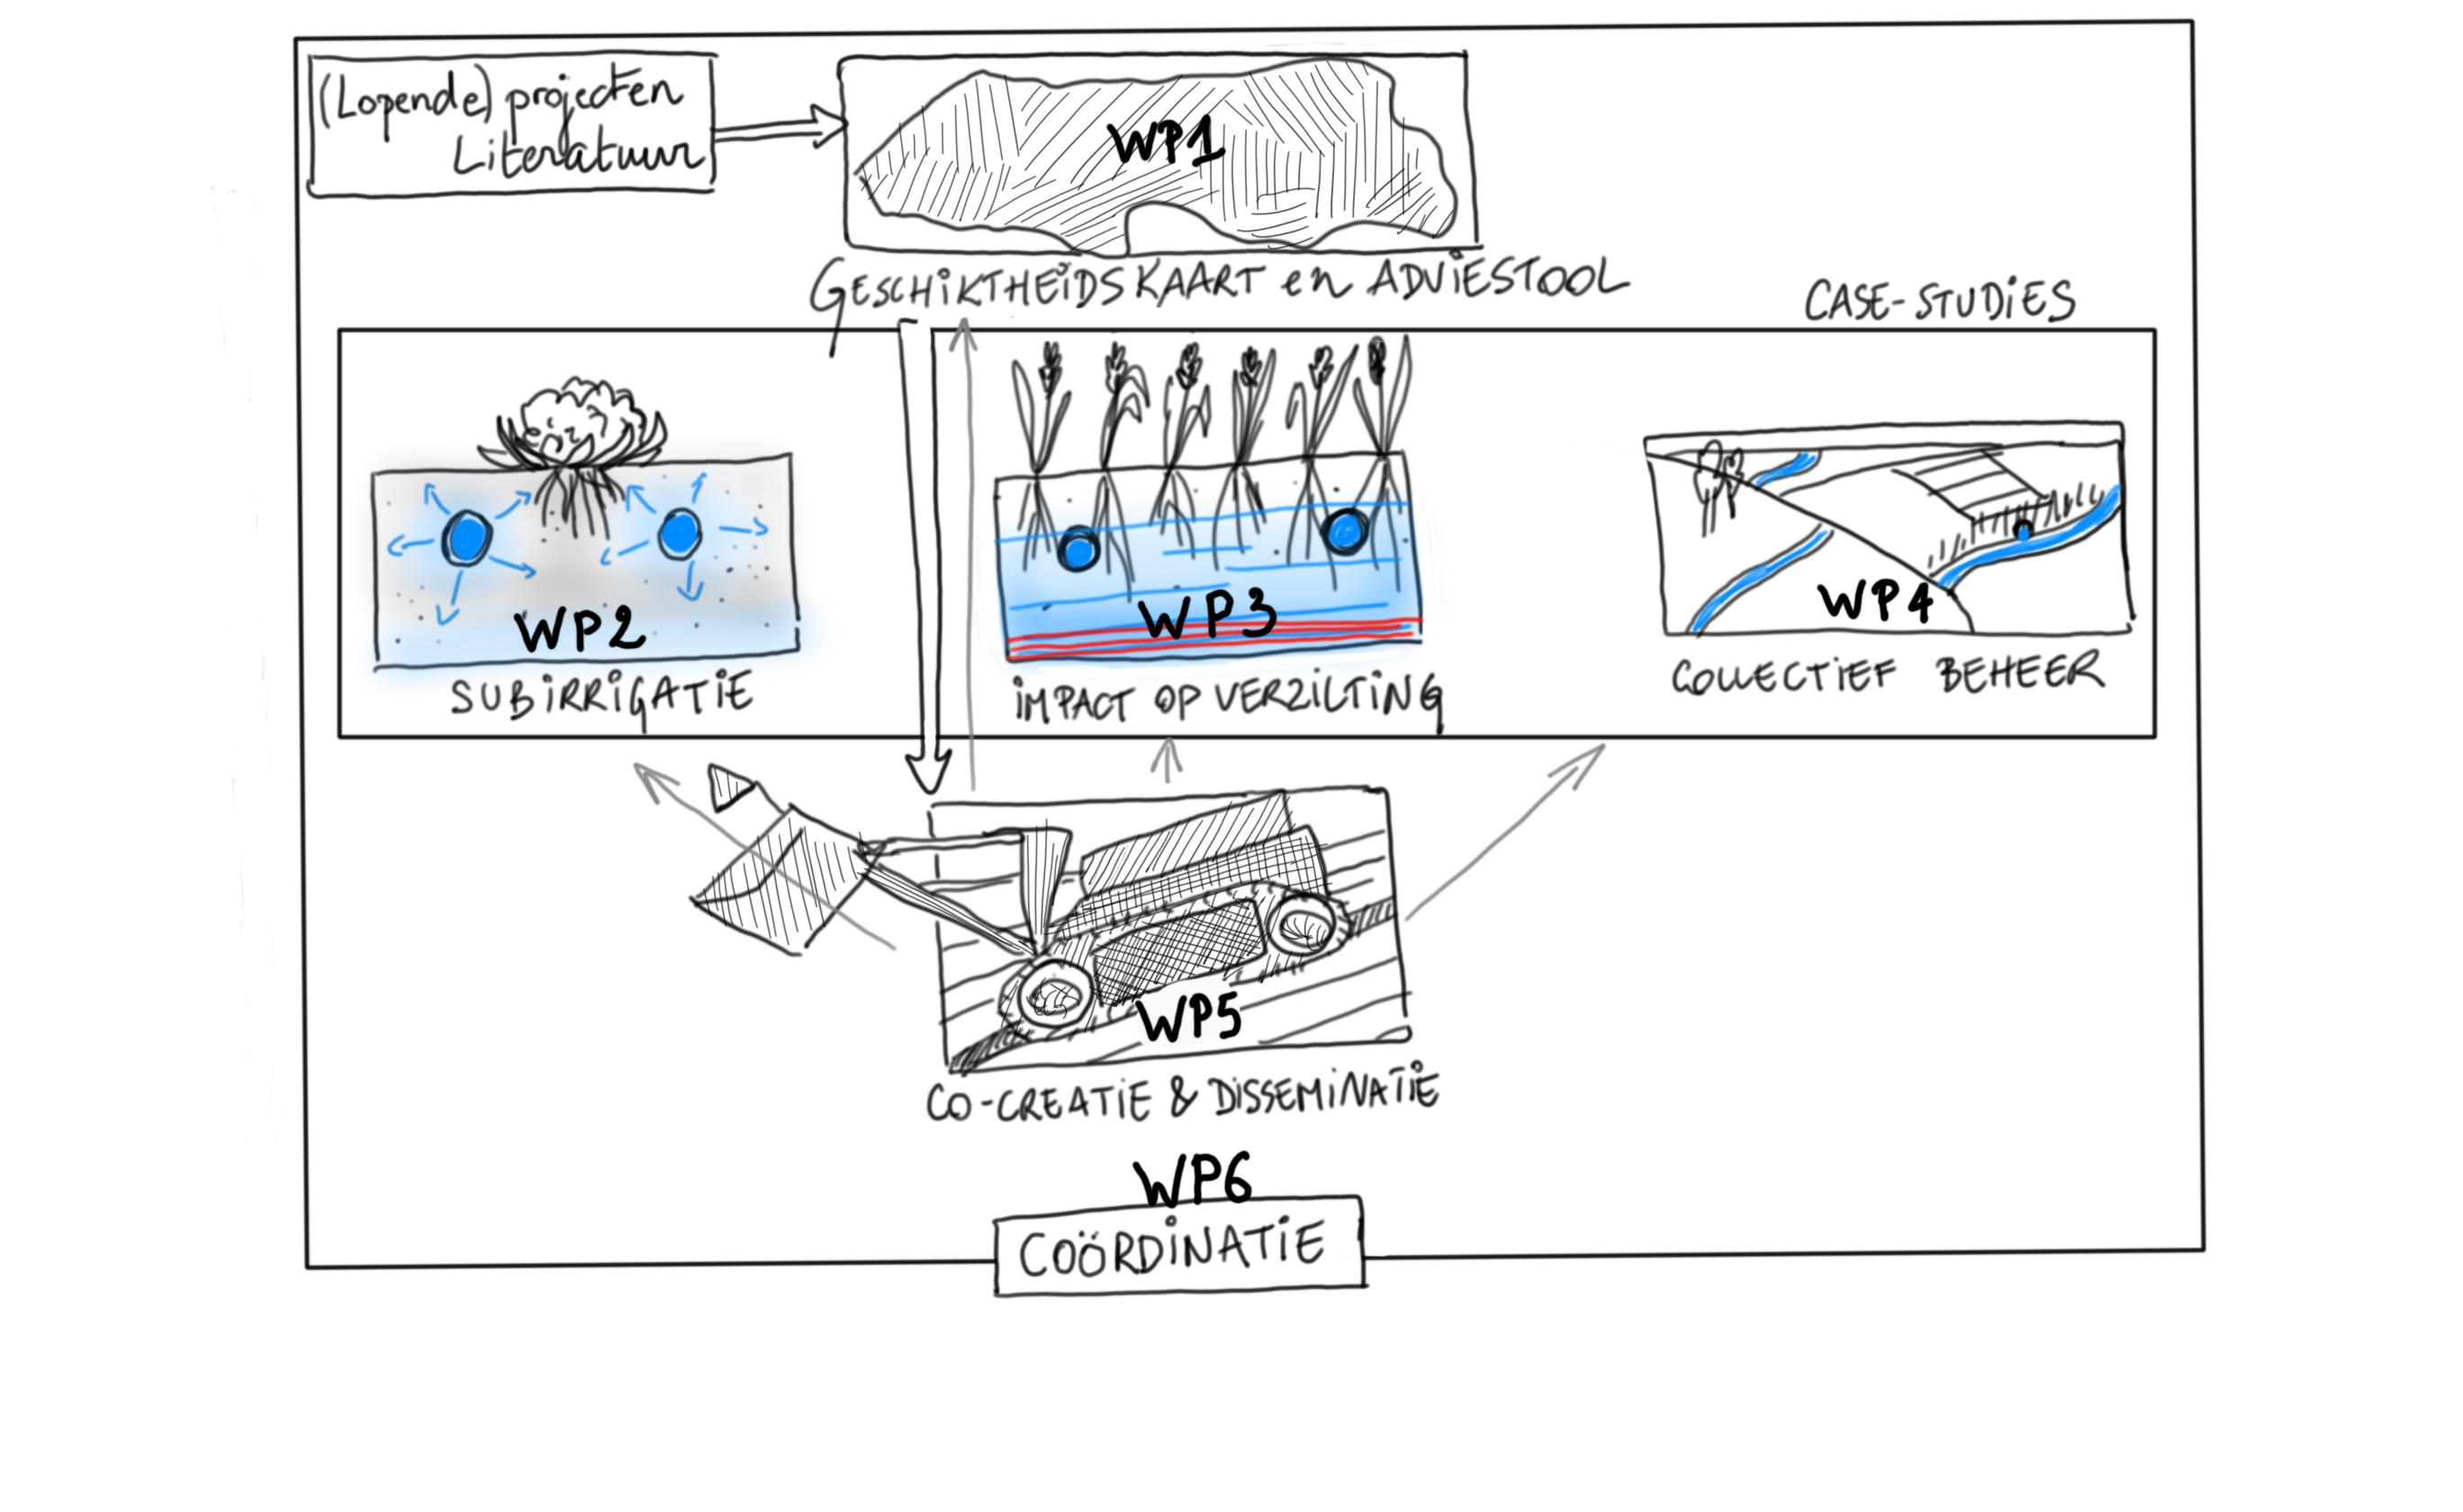 (Lopende) projecten
Literatuur
WP1
GESCHIKTHEIDSKAART en ADVIESTOOL
CASE-STUDIES
WP2
SUBIRRIGATIE
WP3
IMPACT OP VERZILTING
WP4
COLLECTIEF BEHEER
WP5
CO-CREATIE & DISSEMINATIE
WP6
COÖRDINATIE